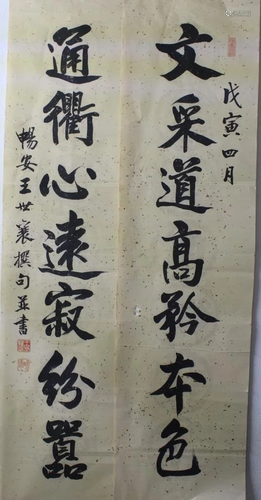 戊寅四月
文采道高矜本色
通衢心遠寂紛囂
暢安王世襄撰句並書